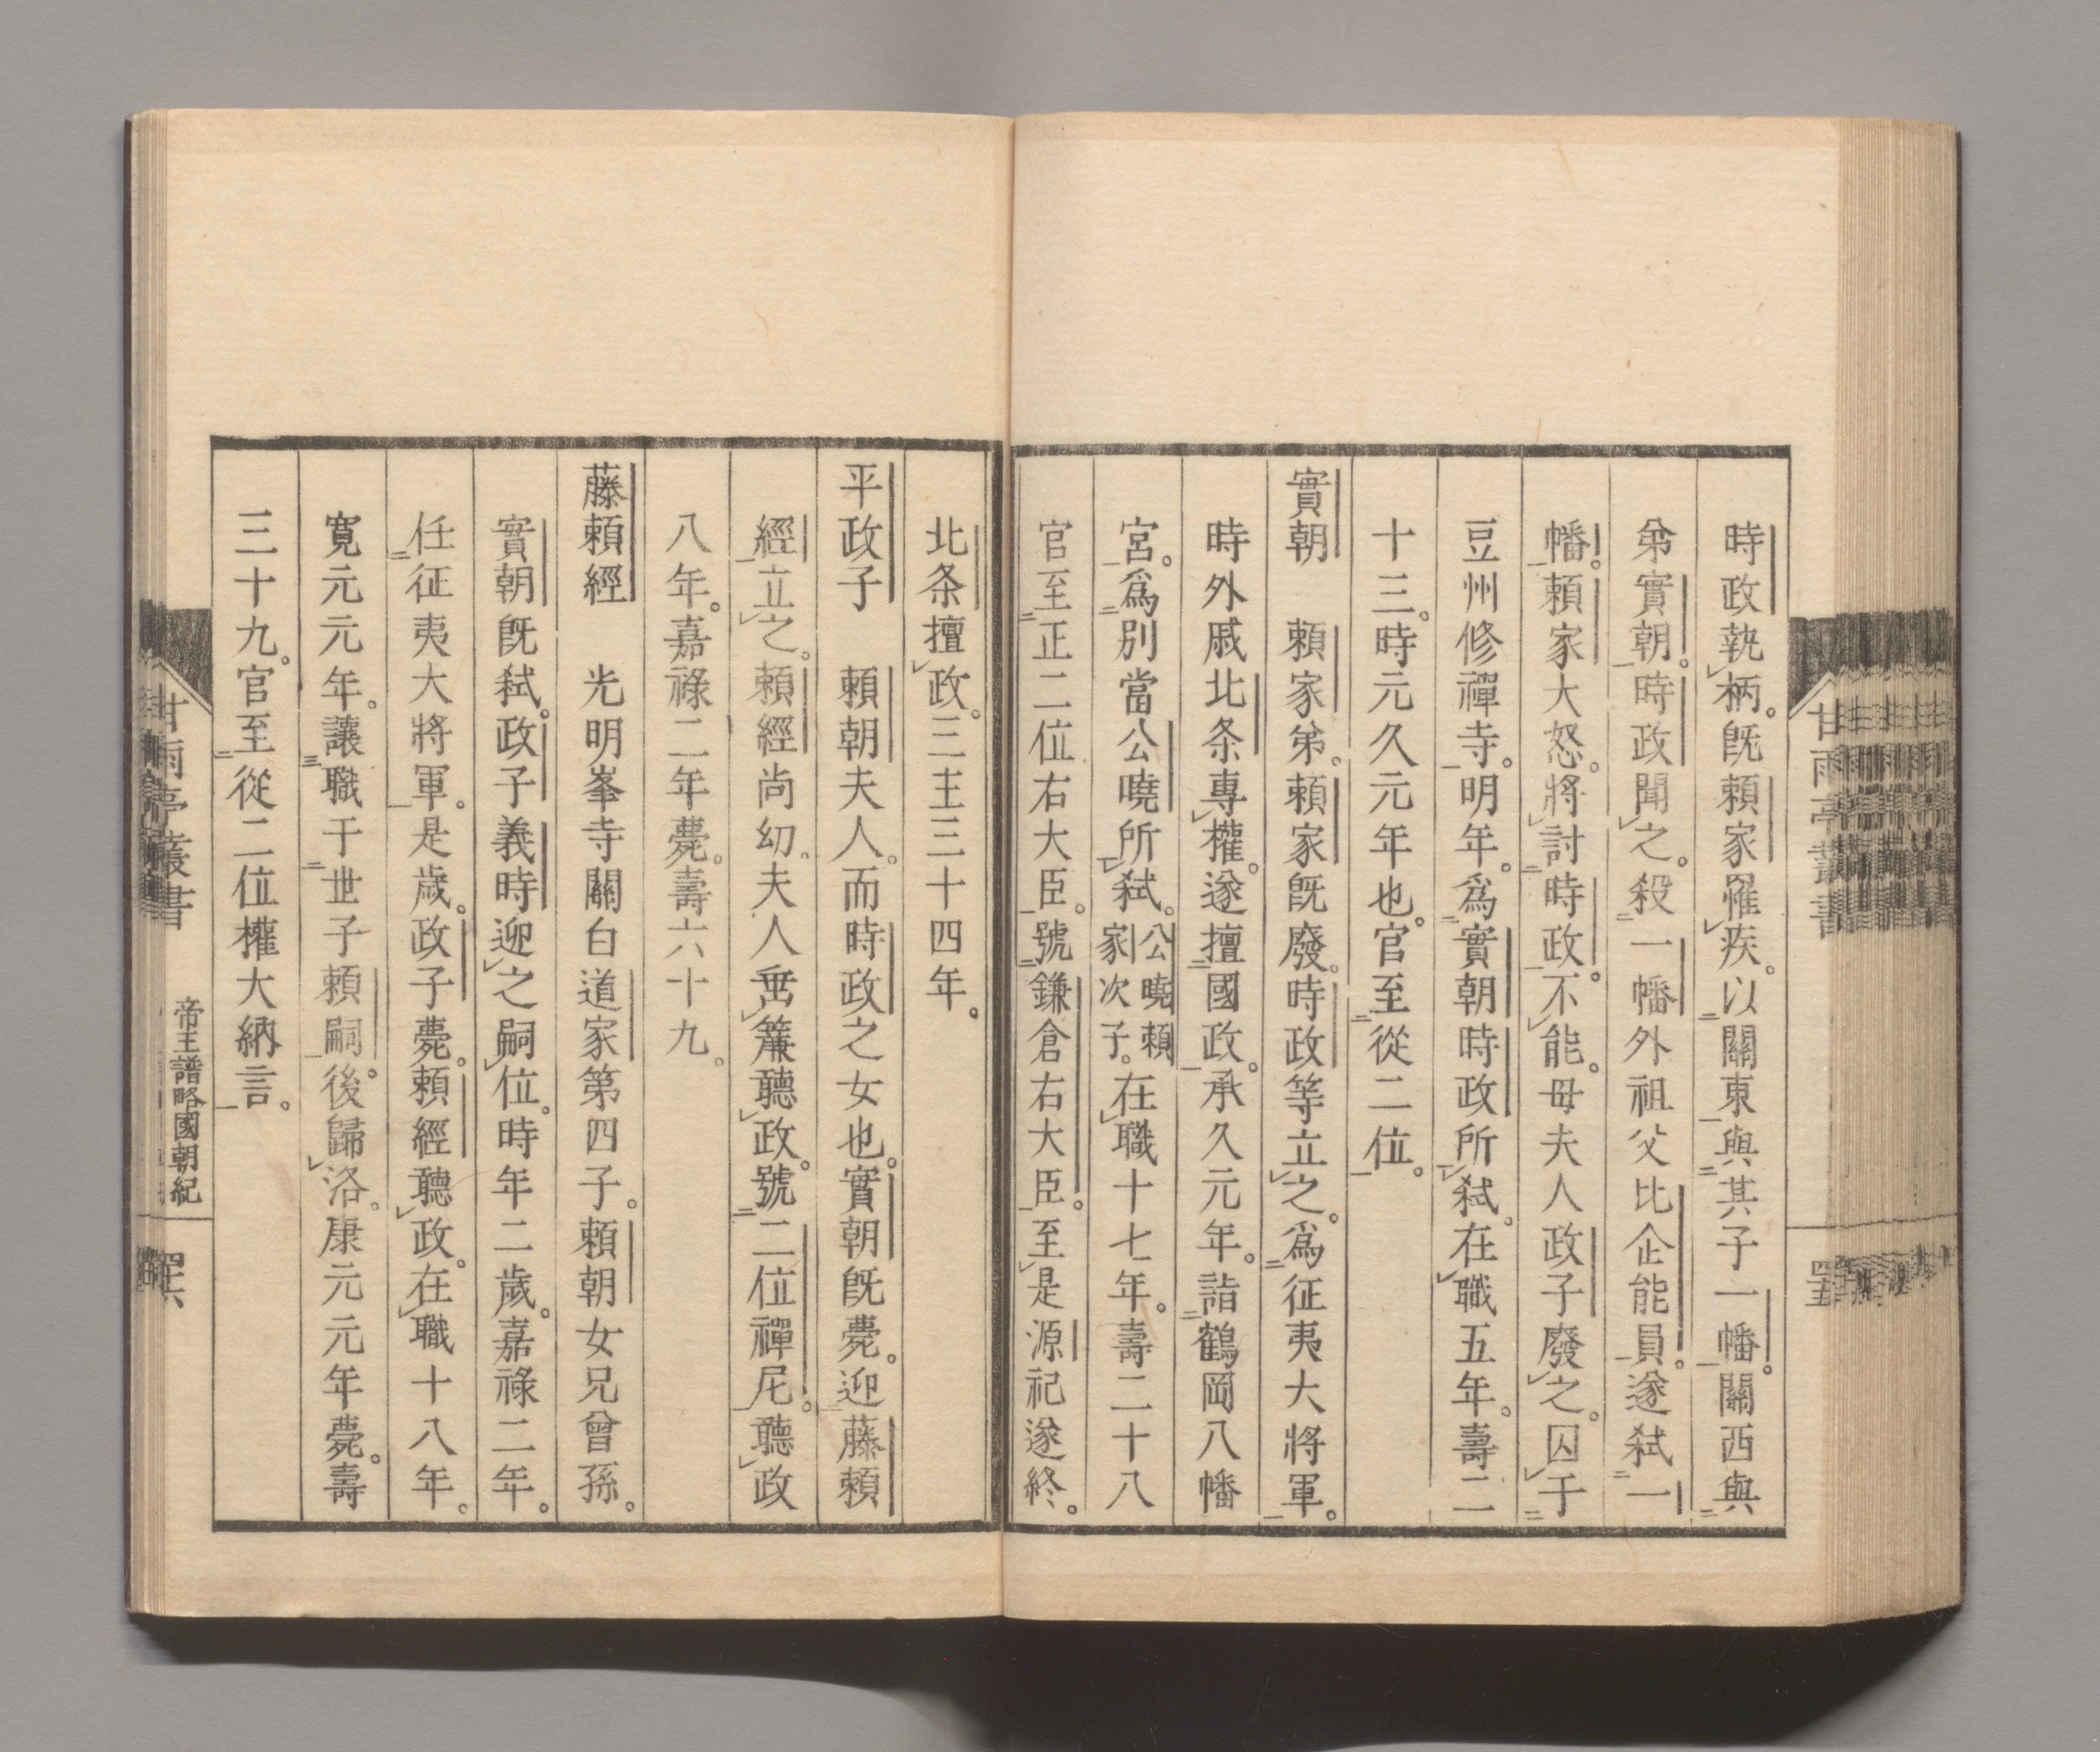 時政執柄。既賴家罹疾。以關東與其子一幡。關西與
弟實朝。時政聞之。殺一幡外祖父比企能員。遂弑一
幡。賴家大怒。將討時政。不能。母夫人政子廢之。囚于
豆州修禪寺。明年。爲實朝時政所弑。在職五年。壽二
十三。時元久元年也。官至從二位。
實朝　賴家弟。賴家既廢。時政等立之。爲征夷大將軍。
時外戚北条專權。遂擅國政。承久元年。詣鶴岡八幡
宮。爲別當公曉所弑。公曉賴家次子。在職十七年。壽二十八
官至正二位右大臣。號鎌倉右大臣。至是源祀遂終。
甘雨亭叢書
四五
北条擅政。三主三十四年。
平政子　賴朝夫人。而時政之女也。實朝既薨。迎藤賴
經立之。賴經尚幼。夫人垂簾聽政。號二位禪尼。聽政
八年。嘉祿二年薨。壽六十九。
藤賴經　光明峯寺關白道家第四子。賴朝女兄曾孫。
實朝既弑。政子義時迎之嗣位。時年二歲。嘉祿二年。
任征夷大將軍。是歲。政子薨。賴經聽政。在職十八年。
寬元元年。讓職于世子賴嗣。後歸洛。康元元年薨。壽
三十九。官至從二位權大納言。
甘雨亭叢書
帝王譜略國朝紀
四六